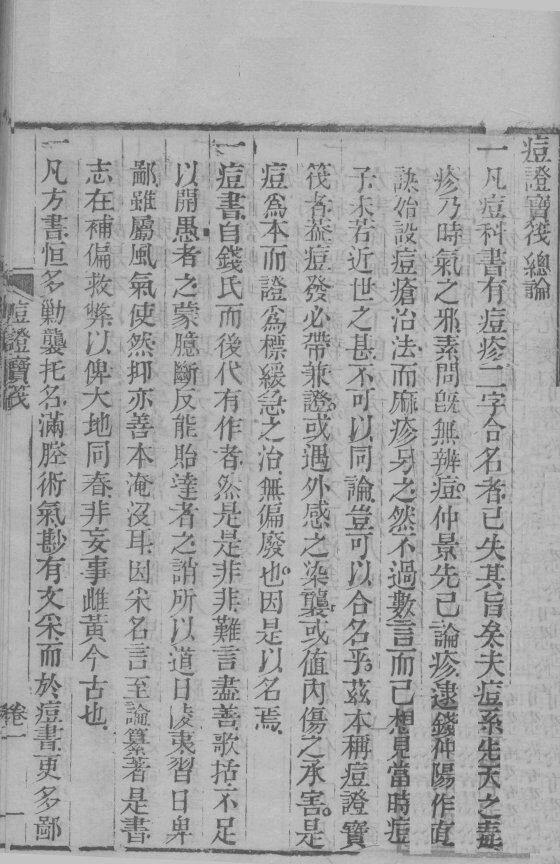 痘證寶筏總論
一凡痘科書有痘疹二字合名者已失其旨矣夫痘系先天之毒
疹乃時氣之邪素問旣無辨痘仲景先已論疹逮錢仲陽作直
訣始設痘瘡治法而麻疹另之然不過數言而已想見當時痘
子未若近世之甚不可以同論豈可以合名乎茲本稱痘證寶
筏者蓋痘發必帶兼證或遇外感之染襲或值內傷之承害是
痘爲本而證爲標緩急之治無偏廢也因是以名焉
一痘書自錢氏而後代有作者然是是非非難言盡善歌括不足
以開愚者之蒙臆斷反能貽達者之誚所以道日凌夷習日卑
鄙雖屬風氣使然抑亦善本淹沒耳因采名言至論纂著是書
志在補偏救弊以俾大地同春非妄事雌黃今古也
一凡方書恒多勦襲托名滿腔術氣尠有文采而於痘書更多鄙
痘證寶筏
卷一
一